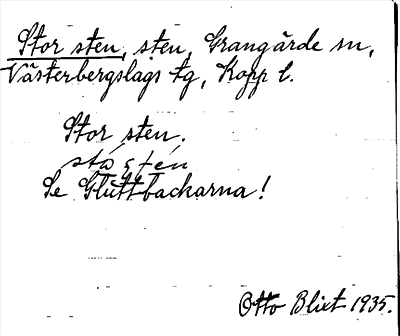 Stor sten, sten, Grangärde sn,
Västerbergslags tg, Kopp l.
Stor sten.
stó stén
Se Gluttbackarna!
Otto Blixt 1935.